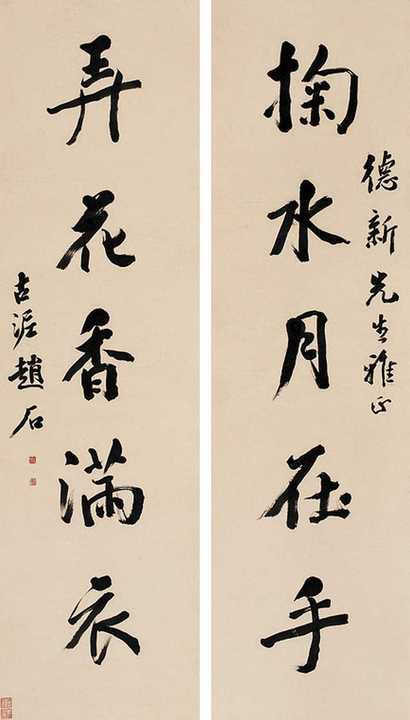 德新先生雅正
掬水月在手
弄花香满衣
古泥趙石